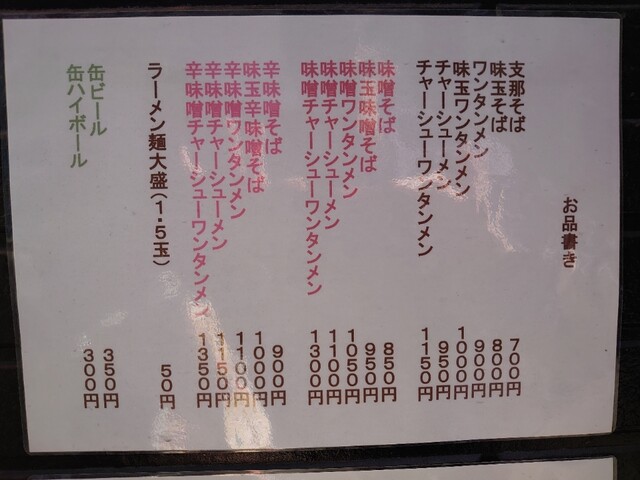 お品書き
支那そば ７００円
味玉そば ８００円
ワンタンメン ９００円
味玉ワンタンメン １０００円
チャーシューメン ９５０円
チャーシューワンタンメン １１５０円
味噌そば ８５０円
味玉味噌そば ９５０円
味噌ワンタンメン １０５０円
味噌チャーシューメン １１００円
味噌チャーシューワンタンメン １３００円
辛味噌そば ９００円
味玉辛味噌そば １０００円
辛味噌ワンタンメン １１００円
辛味噌チャーシューメン １１５０円
辛味噌チャーシューワンタンメン １３５０円
ラーメン麺大盛（１．５玉） ５０円
缶ビール ３５０円
缶ハイボール ３００円